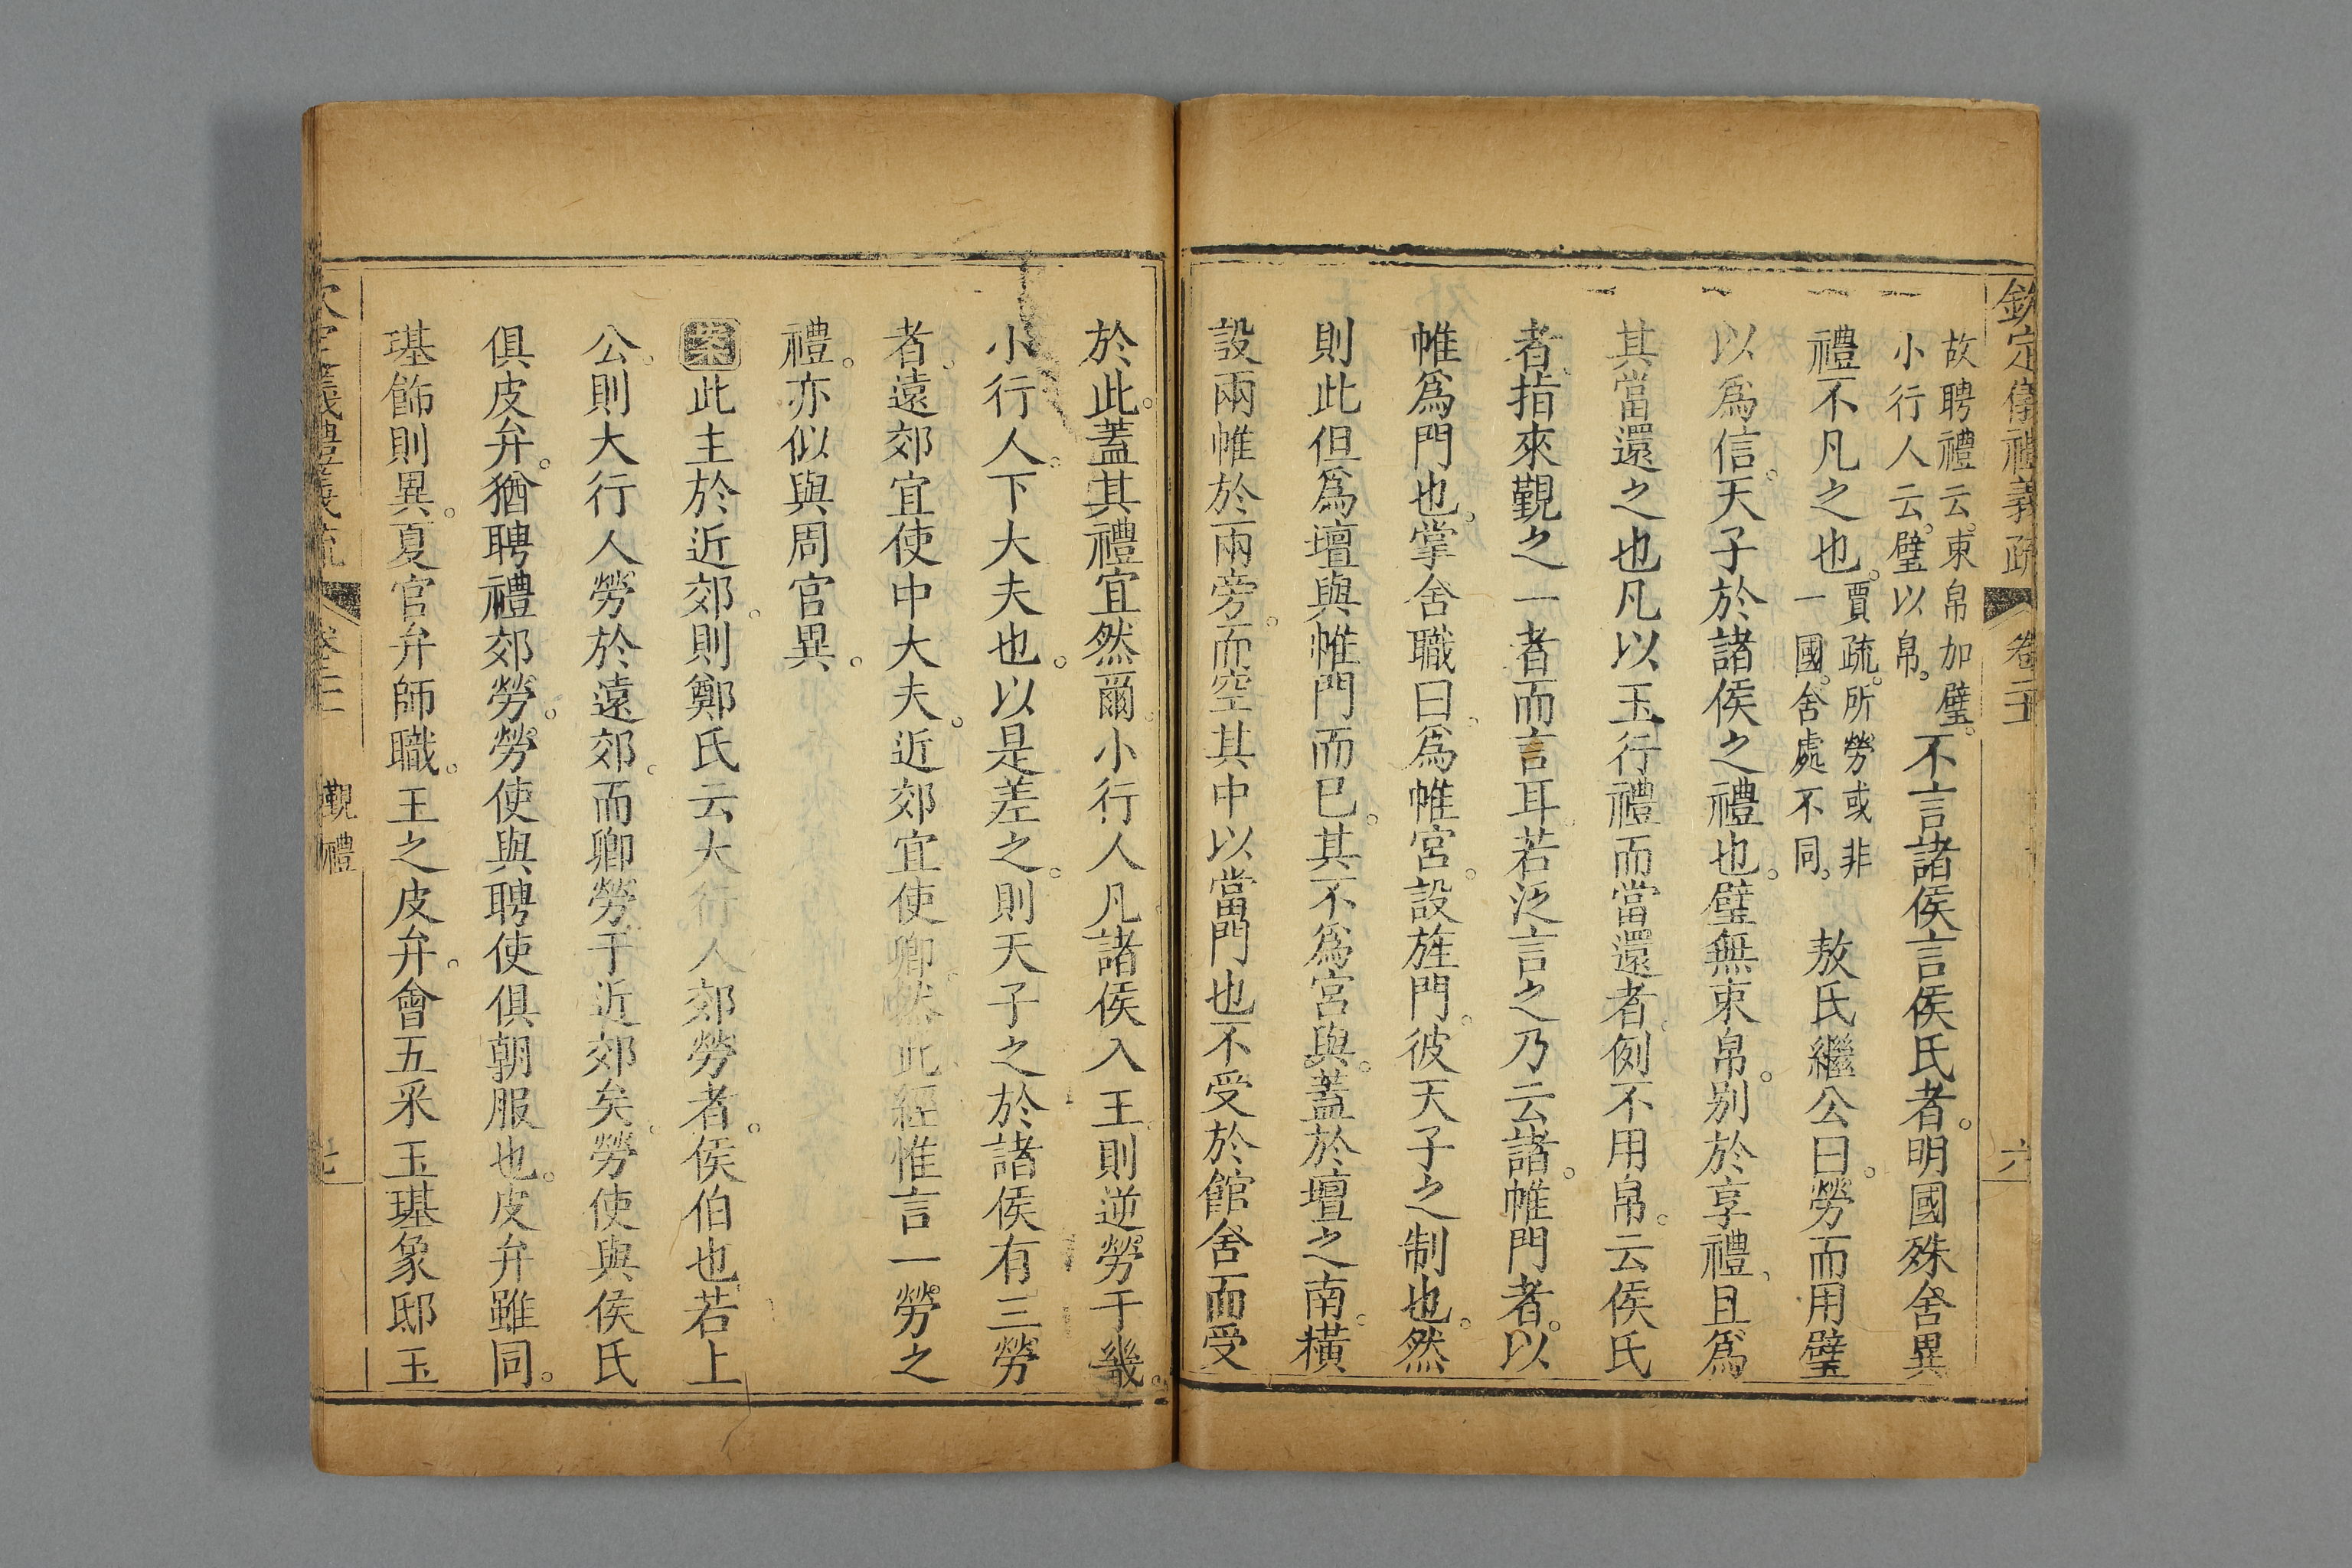 欽定儀禮義疏 卷二十 六
故聘禮云。束帛加璧。
小行人云。璧以帛。
不言諸侯言侯氏者。明國殊舍異
禮不凡之也。
賈疏。所勞或非
一國。舍處不同。
敖氏繼公曰。勞而用璧
以爲信。天子於諸侯之禮也。璧無束帛。別於享禮、且爲
其當還之也凡以玉行禮而當還者、例不用帛。云侯氏
者、指來覲之一者而言耳、若泛言之乃云諸。帷門者。以
帷爲門也。掌舍職曰。爲帷宮。設旌門。彼天子之制也。然
則此但爲壇與帷門而已。其不爲宮與。蓋於壇之南。橫
設兩帷於兩旁。而空其中以當門也不受於館舍而受
於此。蓋其禮宜然爾。小行人凡諸侯入王、則逆勞于畿。
小行人。下大夫也。以是差之。則天子之於諸侯有三勞
者。遠郊宜使中大夫。近郊宜使卿。然此經惟言一勞之
禮。亦似與周官異。
案此主於近郊。則鄭氏云大行人郊勞者。侯伯也、若上
公。則大行人勞於遠郊。而卿勞于近郊矣。勞使與侯氏
俱皮弁。猶聘禮郊勞。勞使與聘使俱朝服也。皮弁雖同。
璂飾則異。夏官弁師職。王之皮弁。會五采玉璂象邸玉
欽定儀禮義疏 卷二十 覲禮 七